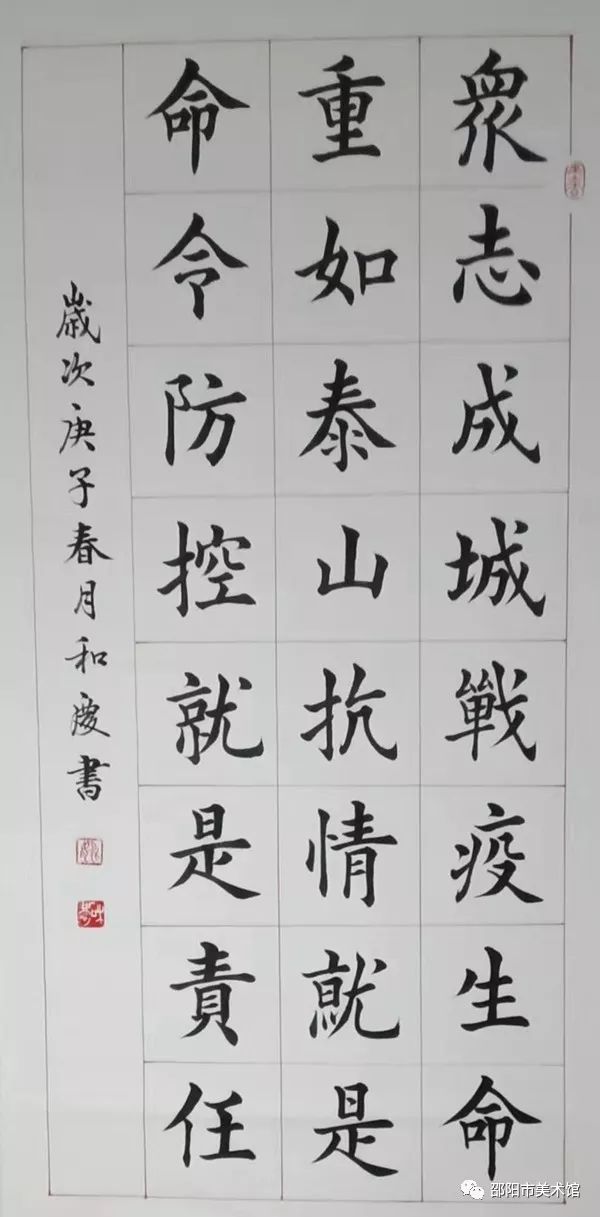 眾志成城戰疫生命
重如泰山抗情就是
命令防控就是責任
歲次庚子春月和慶書
邵阳市美术馆